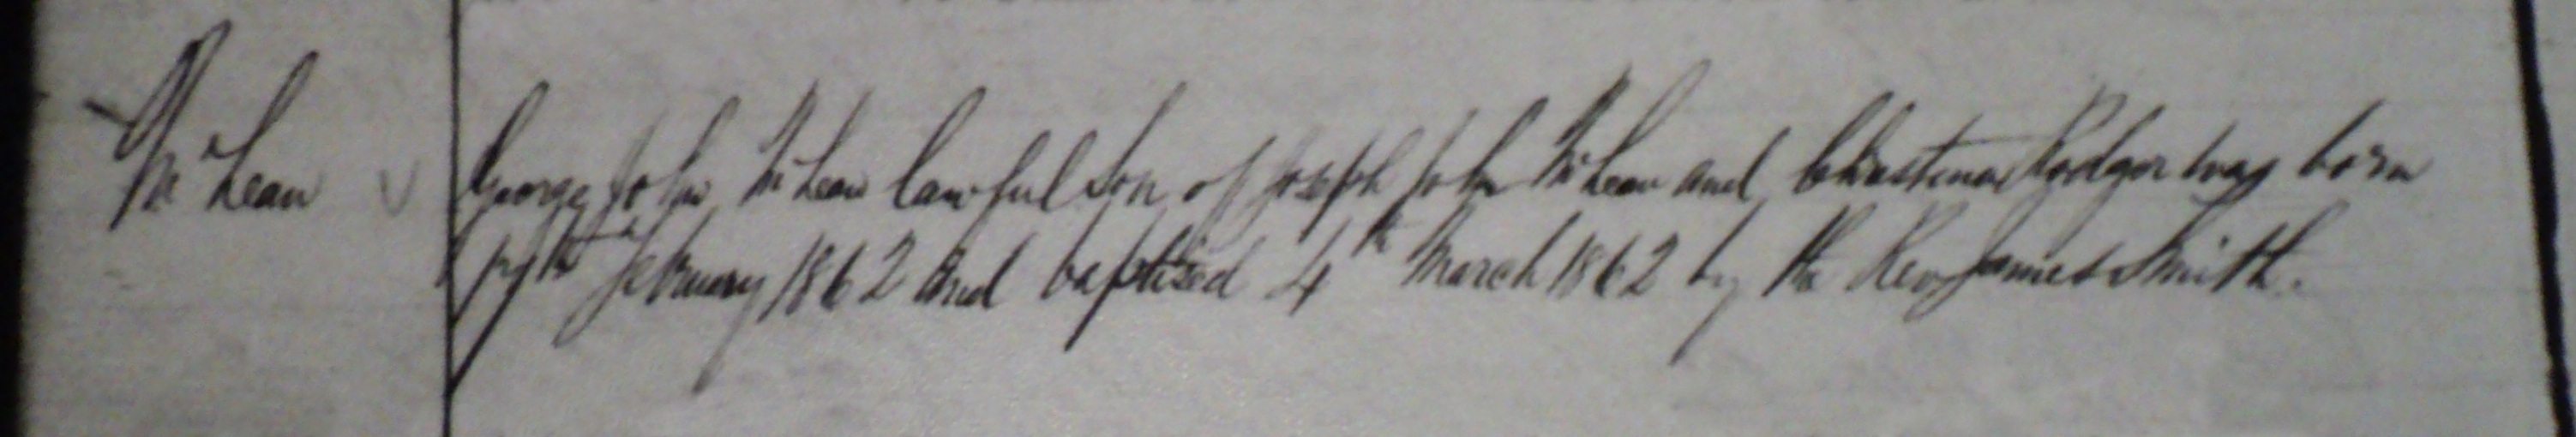 McLean
George John McLean lawful Son of Joseph John McLean and Christina Rodger was born
February 1862 and baptized 4th March 1862 by the Rev James Smith.